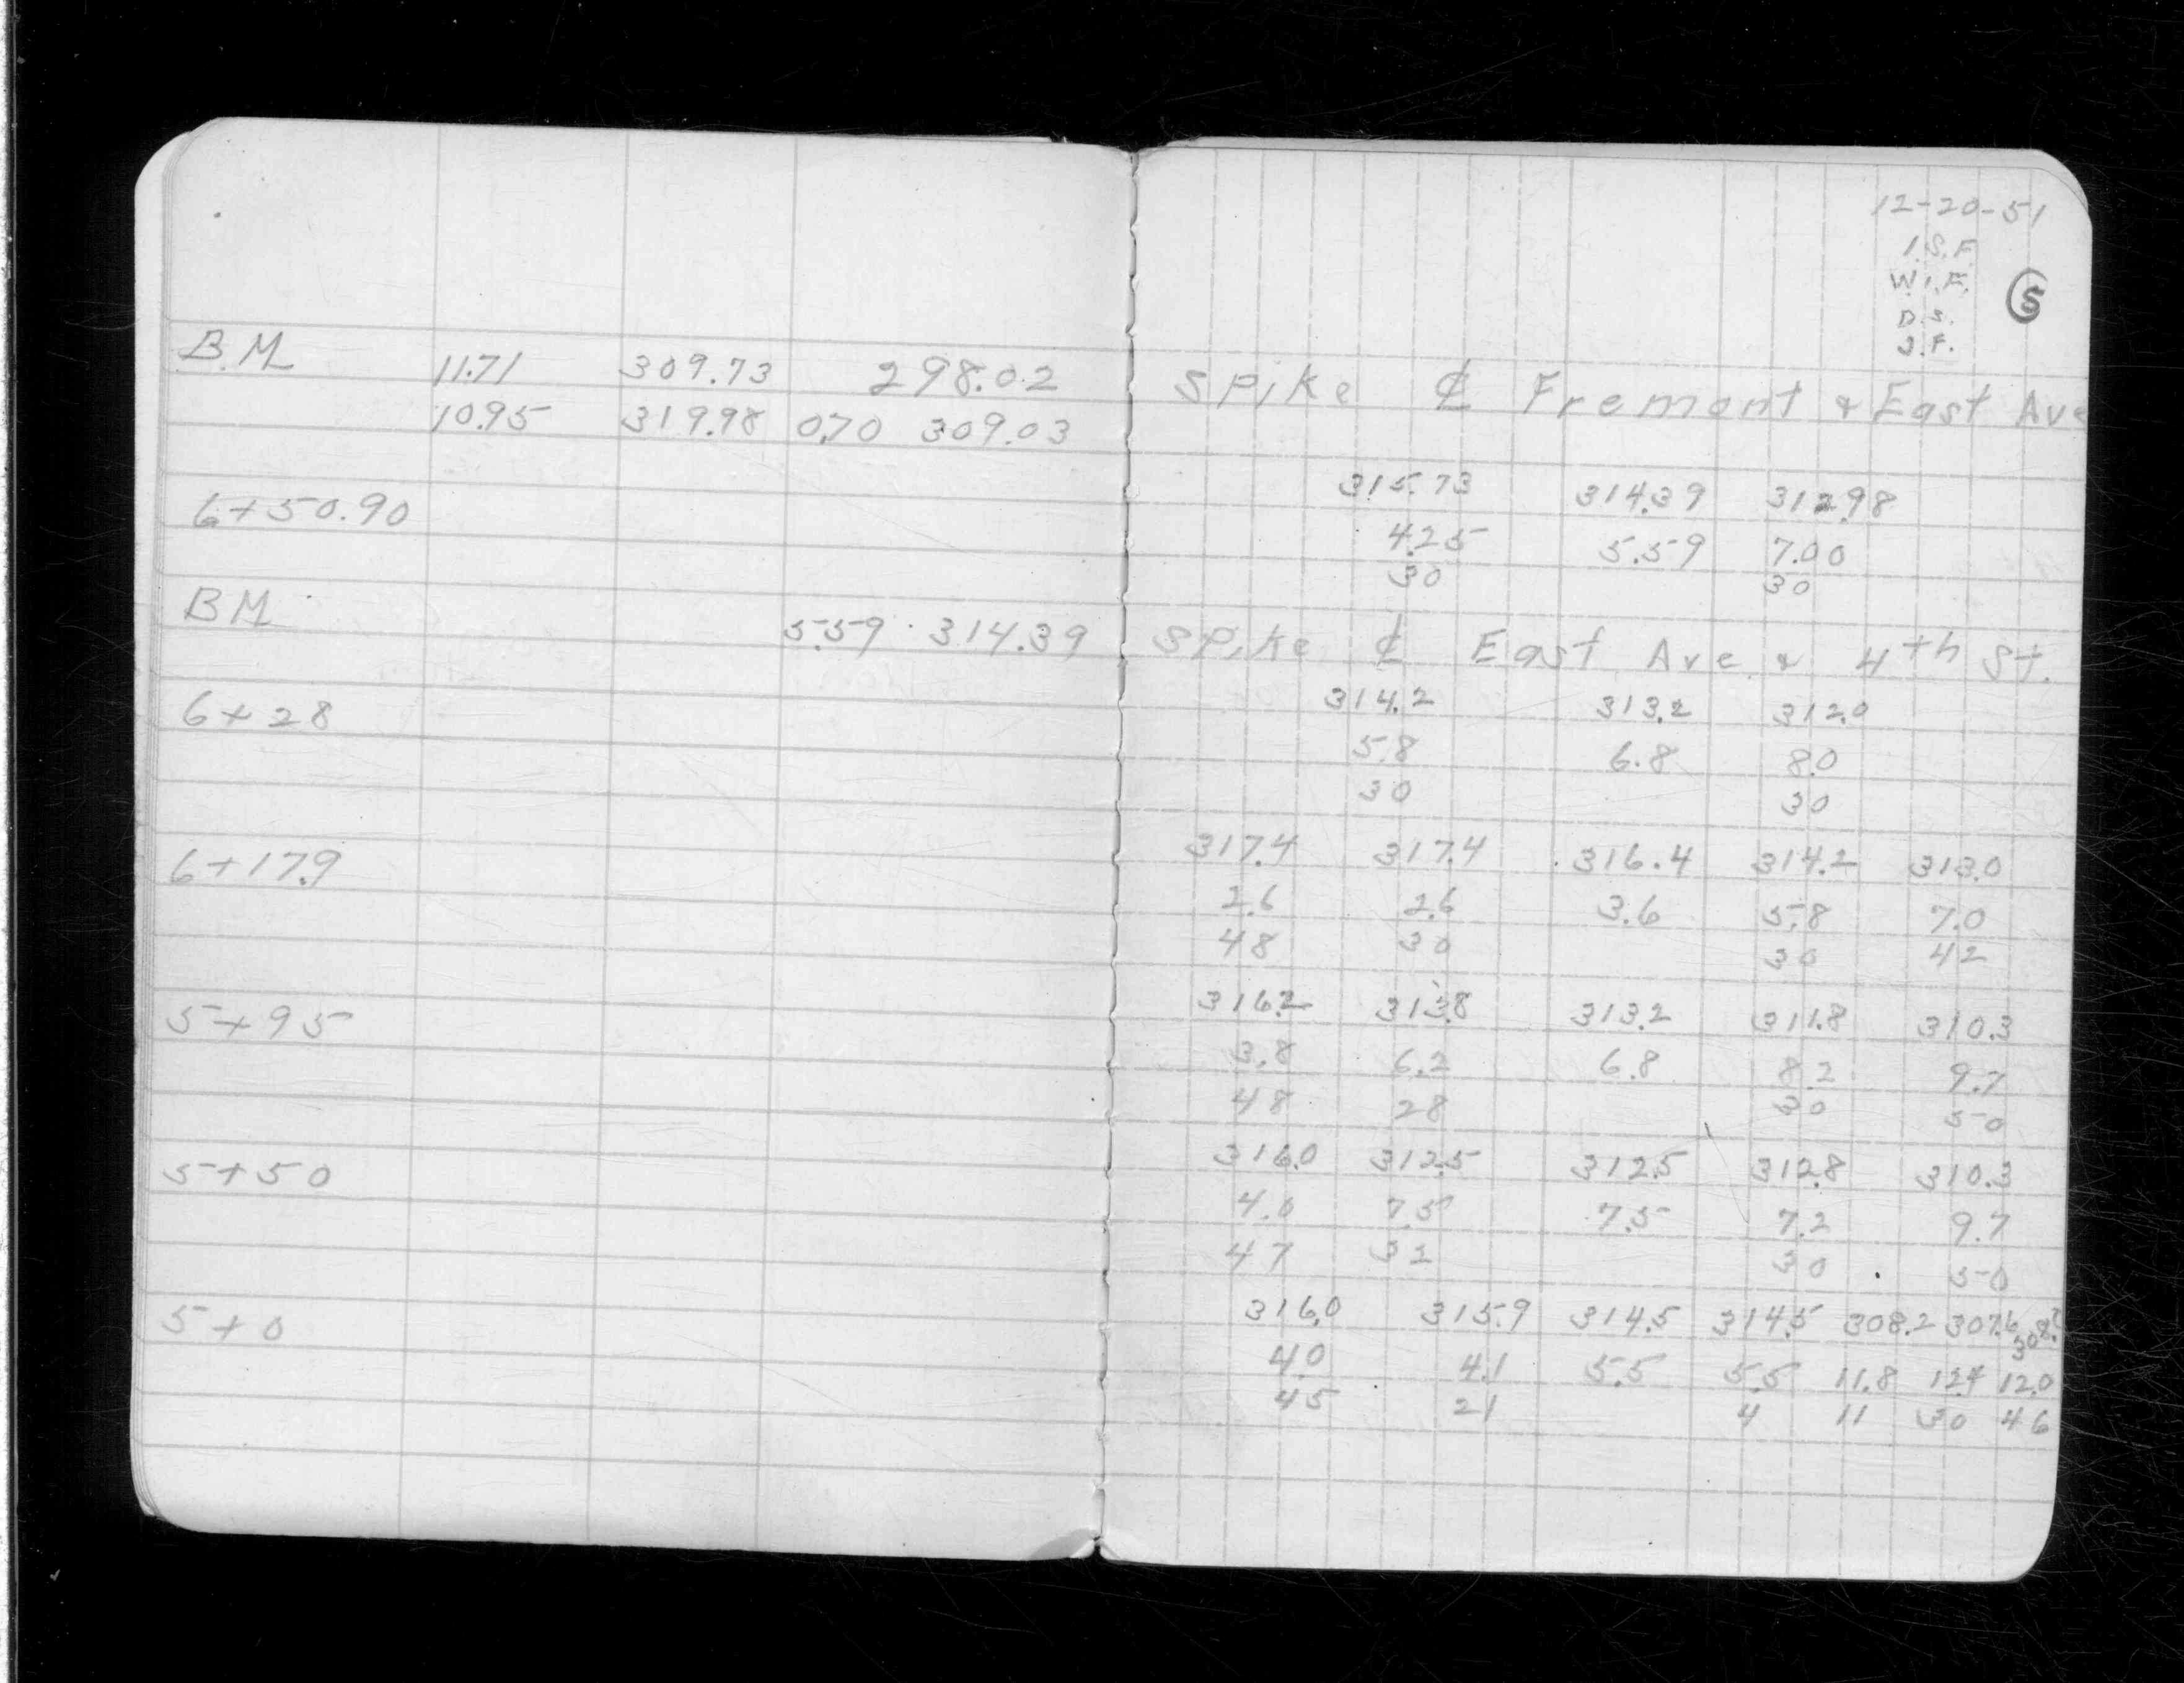 12-20-51
I.S.F.
W.I.F.
D.S.
J.F.
5
B.M. 11.71 309.73 298.02 Spike ℄ Fremont & East Ave
10.95 319.98 0.70 309.03
315.73 314.39 312.98
6+50.90 4.25 5.59 7.00
30 30
BM 5.59 314.39 Spike ℄ East Ave & 4th St.
314.2 313.2 312.0
6+28 5.8 6.8 8.0
30 30
317.4 317.4 316.4 314.2 313.0
6+17.9 2.6 2.6 3.6 5.8 7.0
48 30 30 42
316.2 313.8 313.2 311.8 310.3
5+95 3.8 6.2 6.8 8.2 9.7
48 28 30 50
316.0 312.5 312.5 312.8 310.3
5+50 4.0 7.5 7.5 7.2 9.7
47 32 30 50
316.0 315.9 314.5 314.5 308.2 307.6
5+0 4.0 4.1 5.5 5.5 11.8 12.4 12.0
45 21 4 11 30 46